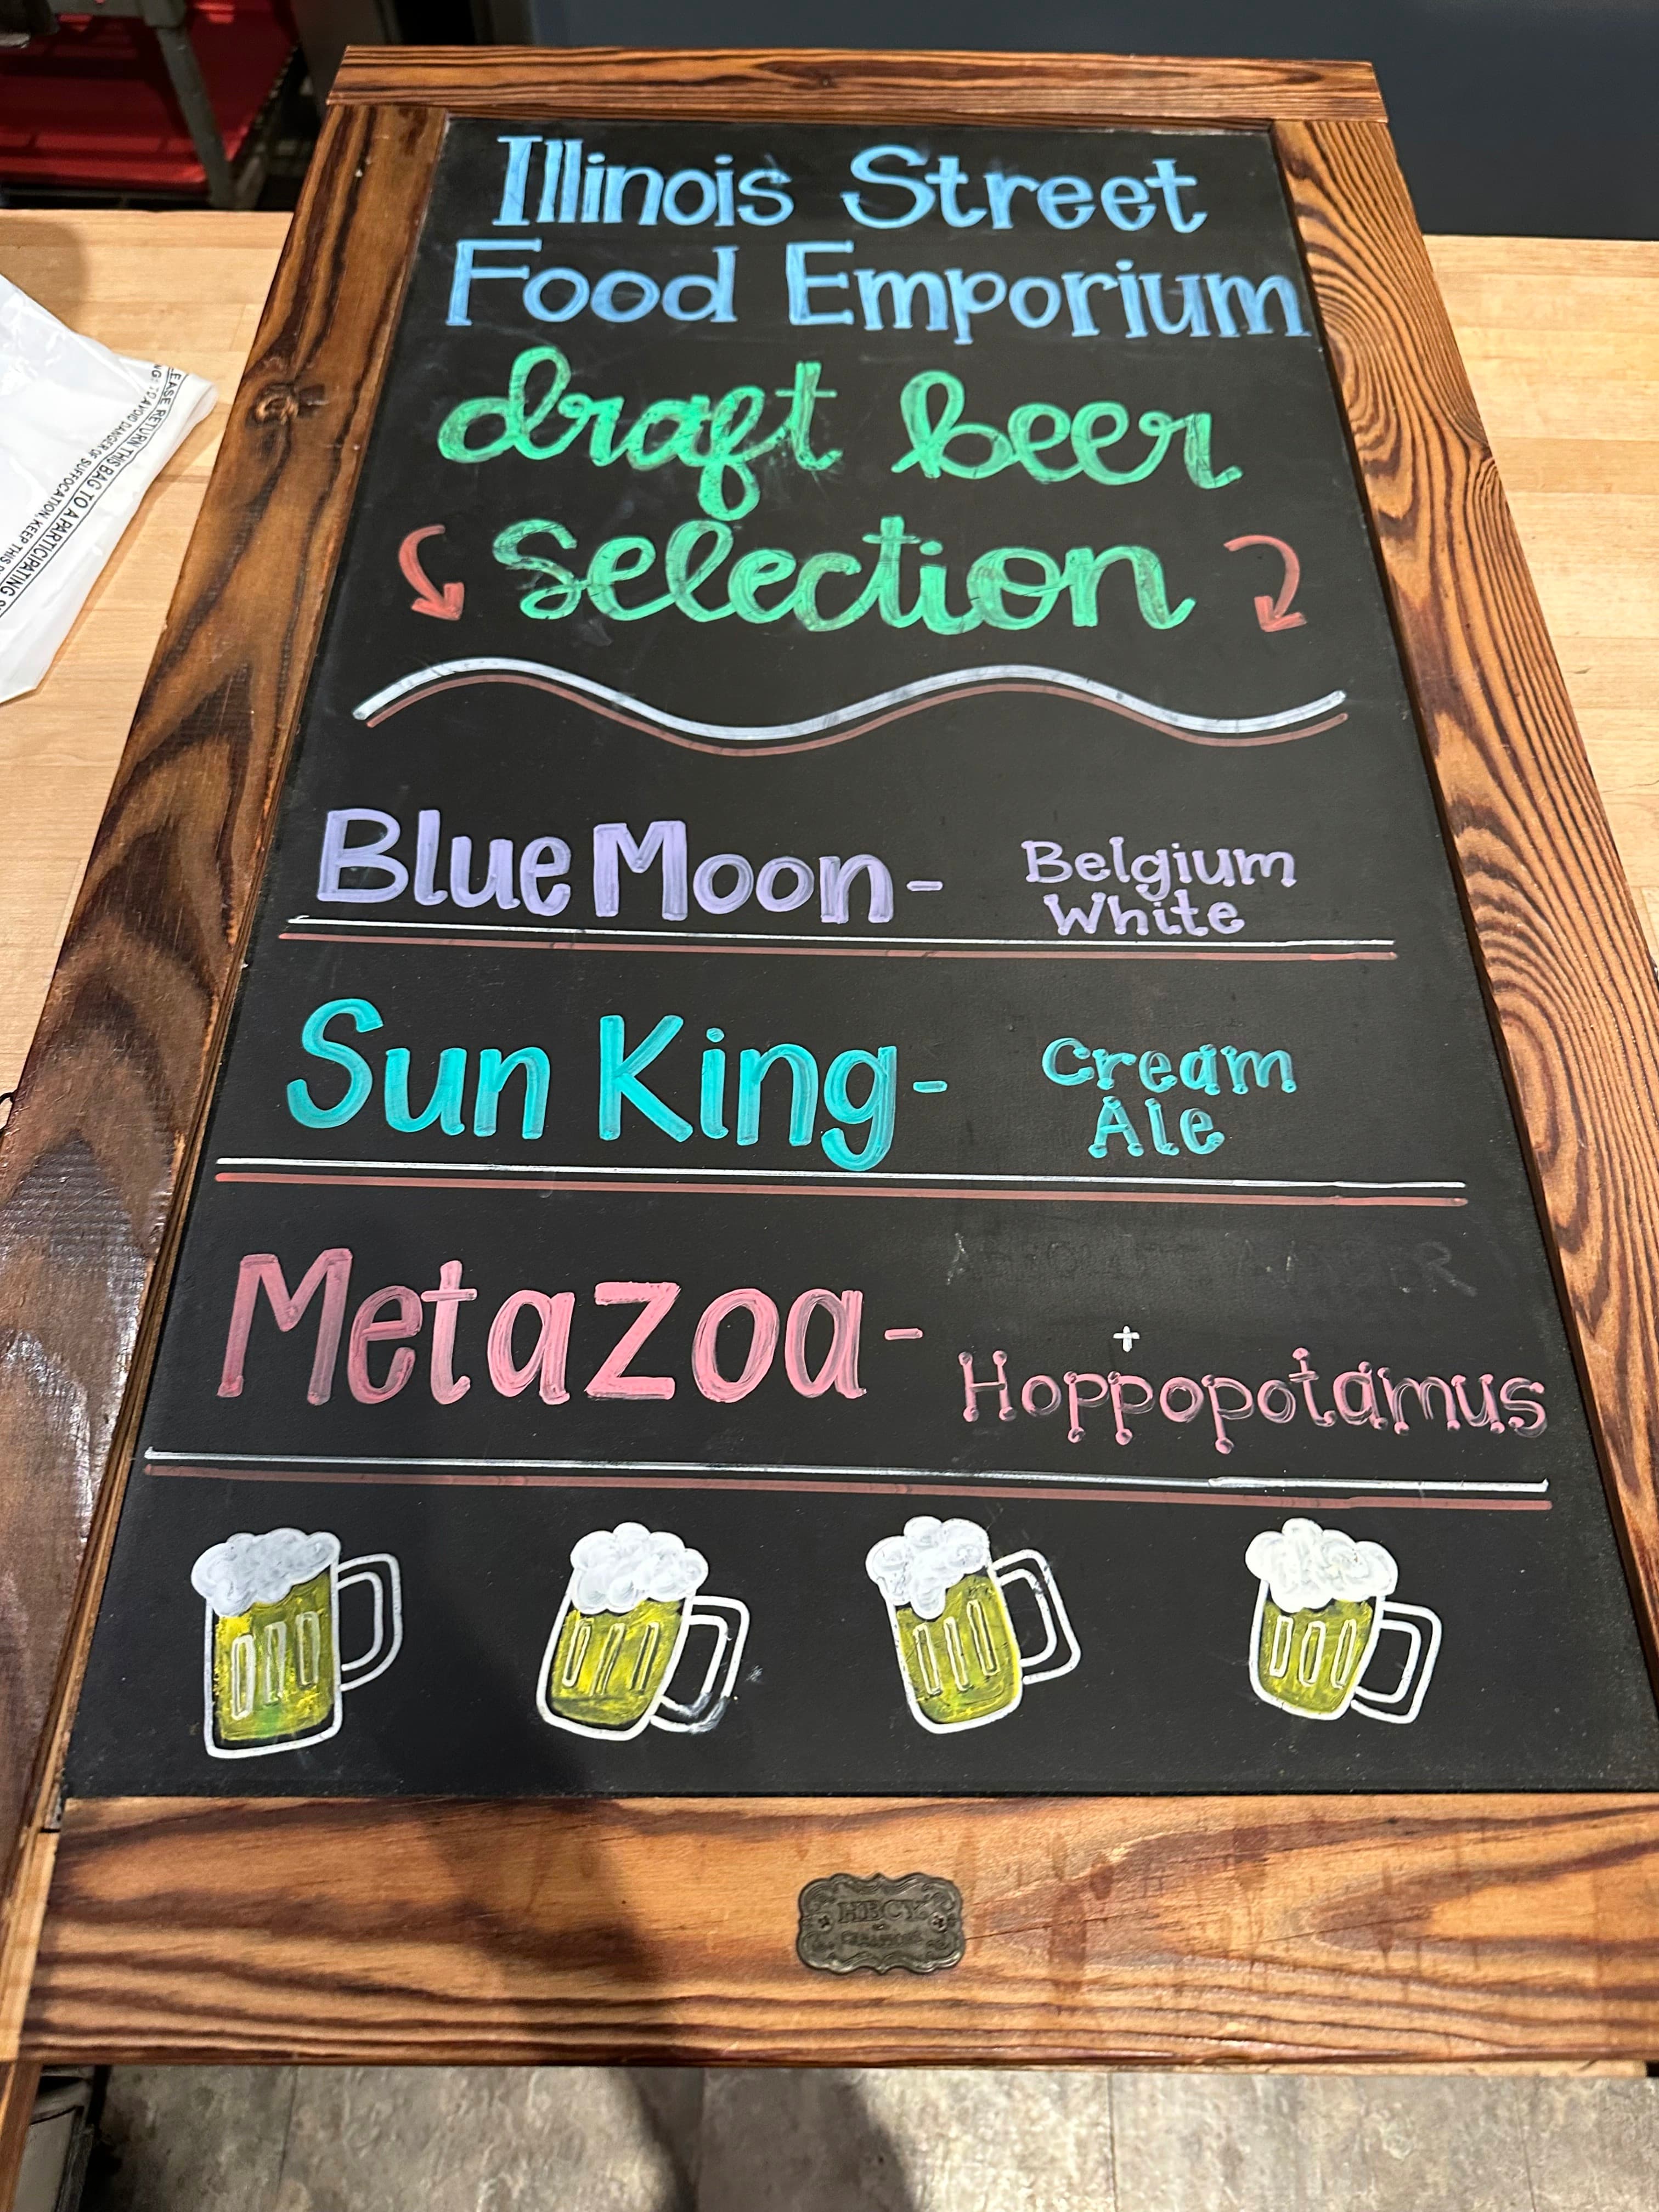 Illinois Street
Food Emporium
draft beer
Selection
Blue Moon - Belgium
White
Sun King - Cream
Ale
Metazoa - +
Hoppopotamus
EASE RETURN THIS BAG TO A PARTICIPATING
TO AVOID DANGER OF SUFFOCATION, KEEP THIS